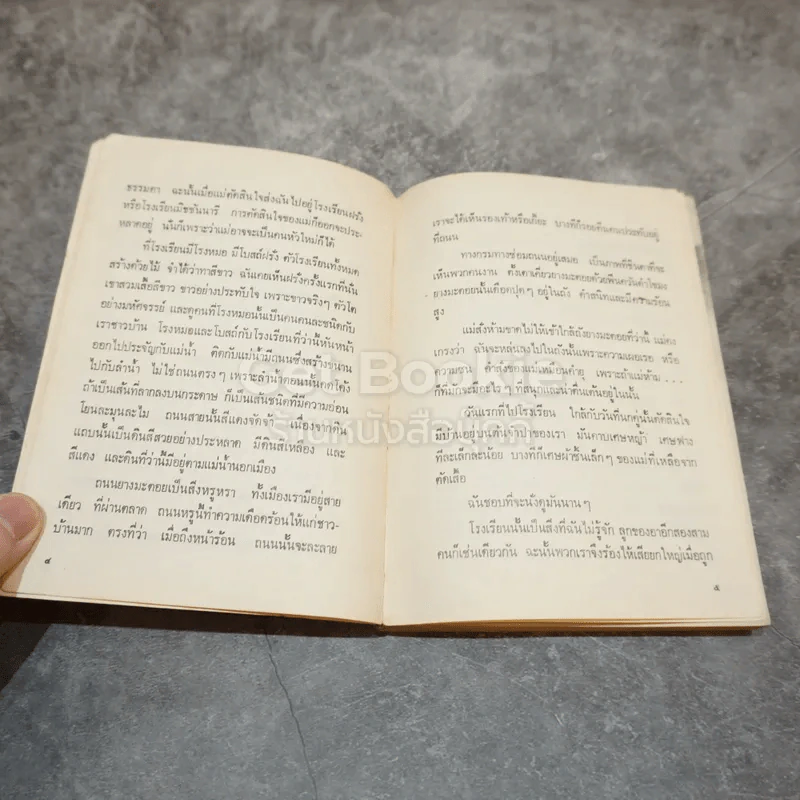 ธรรมดา ฉะนั้นเมื่อแม่ตัดสินใจส่งฉันไปอยู่โรงเรียนฝรั่ง
หรือโรงเรียนมิชชันนารี การตัดสินใจของแม่ก็ออกจะประ-
หลาดอยู่ นั่นก็เพราะว่าแม่อาจจะเป็นคนหัวใหม่ก็ได้
ที่โรงเรียนมีโรงหมอ มีโบสถ์ฝรั่ง ตัวโรงเรียนทั้งหมด
สร้างด้วยไม้ จำได้ว่าทาสีขาว ฉันเคยเห็นฝรั่งครั้งแรกที่นั่น
เขาสวมเสื้อสีขาว ขาวอย่างประทับใจ เพราะขาวจริงๆ ตัวโต
อย่างมหัศจรรย์ และดูคนที่โรงหมอนั้นเป็นคนคนละชนิดกับ
เราชาวบ้าน โรงหมอและโบสถ์กับโรงเรียนที่ว่านี้หันหน้า
ออกไปประจัญกับแม่น้ำ ติดกับแม่น้ำมีถนนซึ่งสร้างขนาน
ไปกับลำน้ำ ไม่ใช่ถนนตรงๆ เพราะลำน้ำตอนนั้นคดโค้ง
ถ้าเป็นเส้นที่ลากลงบนกระดาษ ก็เป็นเส้นชนิดที่มีความอ่อน
โยนละมุนละไม ถนนสายนั้นสีแดงจัดจ้า เนื่องจากดิน
แถบนั้นเป็นดินสีสวยอย่างประหลาด มีดินสีเหลือง และ
สีแดง และดินที่ว่านี้มีอยู่ตามแม่น้ำนอกเมือง
ถนนยางมะตอยเป็นสิ่งหรูหรา ทั้งเมืองเรามีอยู่สาย
เดียว ที่ผ่านตลาด ถนนหรูนี้ทำความเดือดร้อนให้แก่ชาว-
บ้านมาก ตรงที่ว่า เมื่อถึงหน้าร้อน ถนนนั้นจะละลาย
๔
เราจะได้เห็นรองเท้าหรือเกี๊ยะ บางทีก็รอยตีนคนประทับอยู่
ที่ถนน
ทางกรมทางซ่อมถนนอยู่เสมอ เป็นภาพที่ชินตาที่จะ
เห็นพวกคนงาน ตั้งเตาเคี่ยวยางมะตอยด้วยฟืนควันดำโขมง
ยางมะตอยนั้นเดือดปุดๆ อยู่ในถัง ดำสนิทและมีความร้อน
สูง
แม่สั่งห้ามขาดไม่ให้เข้าใกล้ถังยางมะตอยที่ว่านี้ แม่คง
เกรงว่า ฉันจะหล่นลงไปในถังนั้นเพราะความเผอเรอ หรือ
ความซน คำสั่งของแม่เหมือนคำขู่ เพราะถ้าแม่ห้าม ...
ก็ทีมักจะมีอะไร ๆ ที่น่าสนุกและน่าตื่นเต้นอยู่ในนั้น
วันแรกที่ไปโรงเรียน ใกล้กับวันที่นกคู่นั้นตัดสินใจ
มีบ้านอยู่บนต้นจำปาของเรา มันคาบเศษหญ้า เศษฟาง
ทีละเล็กละน้อย บางทีก็เศษผ้าชิ้นเล็กๆ ของแม่ที่เหลือจาก
ตัดเสื้อ
ฉันชอบที่จะนั่งดูมันนานๆ
โรงเรียนนั้นเป็นสิ่งที่ฉันไม่รู้จัก ลูกของอาอีกสองสาม
คนก็เช่นเดียวกัน ฉะนั้นพวกเราจึงร้องไห้เสียยกใหญ่เมื่อถูก
๕
ร้านหนังสือบุ๊คที